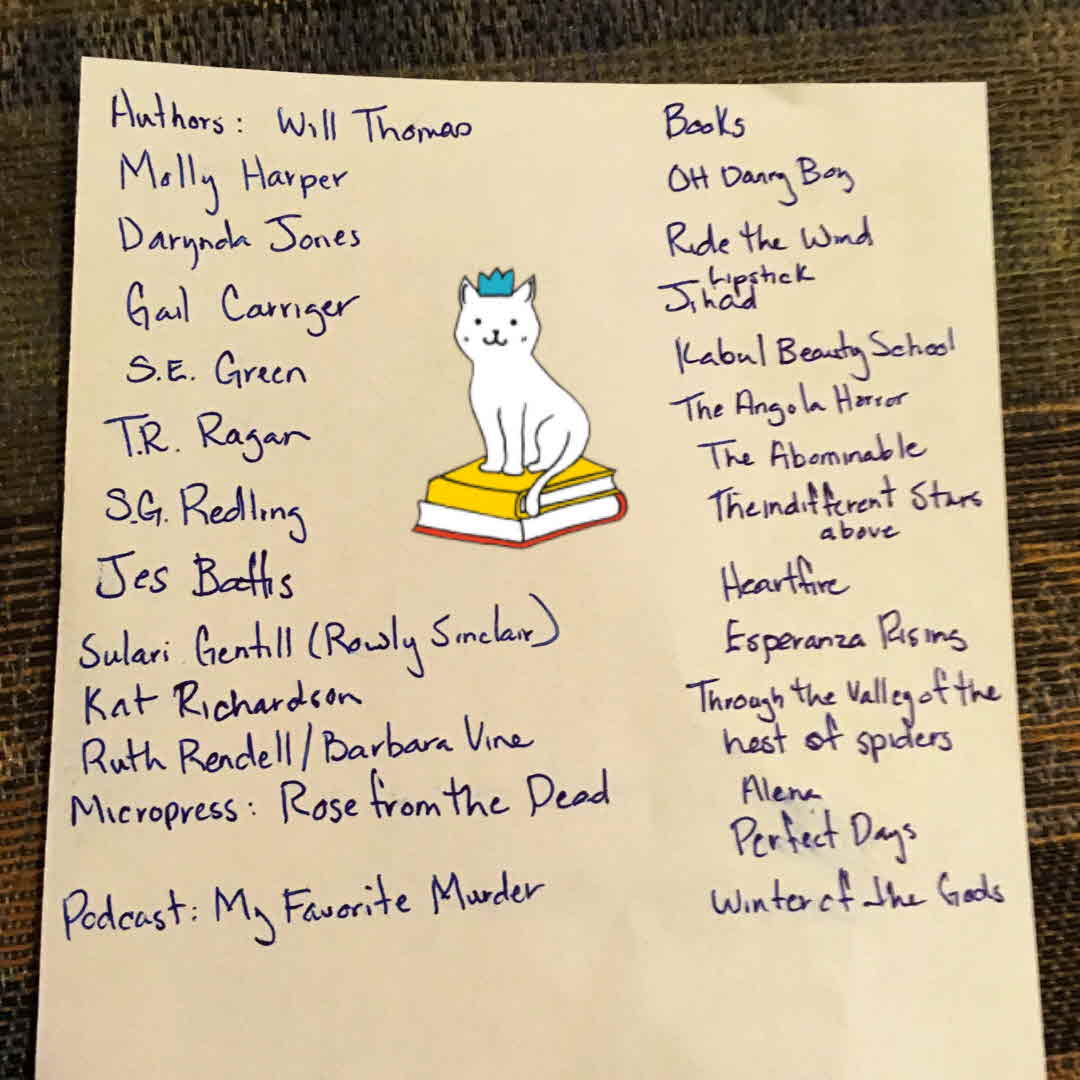 Authors: Will Thomas
Molly Harper
Darynda Jones
Gail Carriger
S.E. Green
T.R. Ragan
S.G. Redling
Jes Battis
Sulari Gentill (Rowly Sinclair)
Kat Richardson
Ruth Rendell/Barbara Vine
Micropress: Rose from the Dead
Podcast: My Favorite Murder
Books
OH Danny Boy
Ride the Wind
Lipstick
Jihad
Kabul Beauty School
The Angola Horror
The Abominable
The indifferent Stars
above
Heartfire
Esperanza Rising
Through the Valley of the
nest of spiders
Alena
Perfect Days
Winter of the Gods